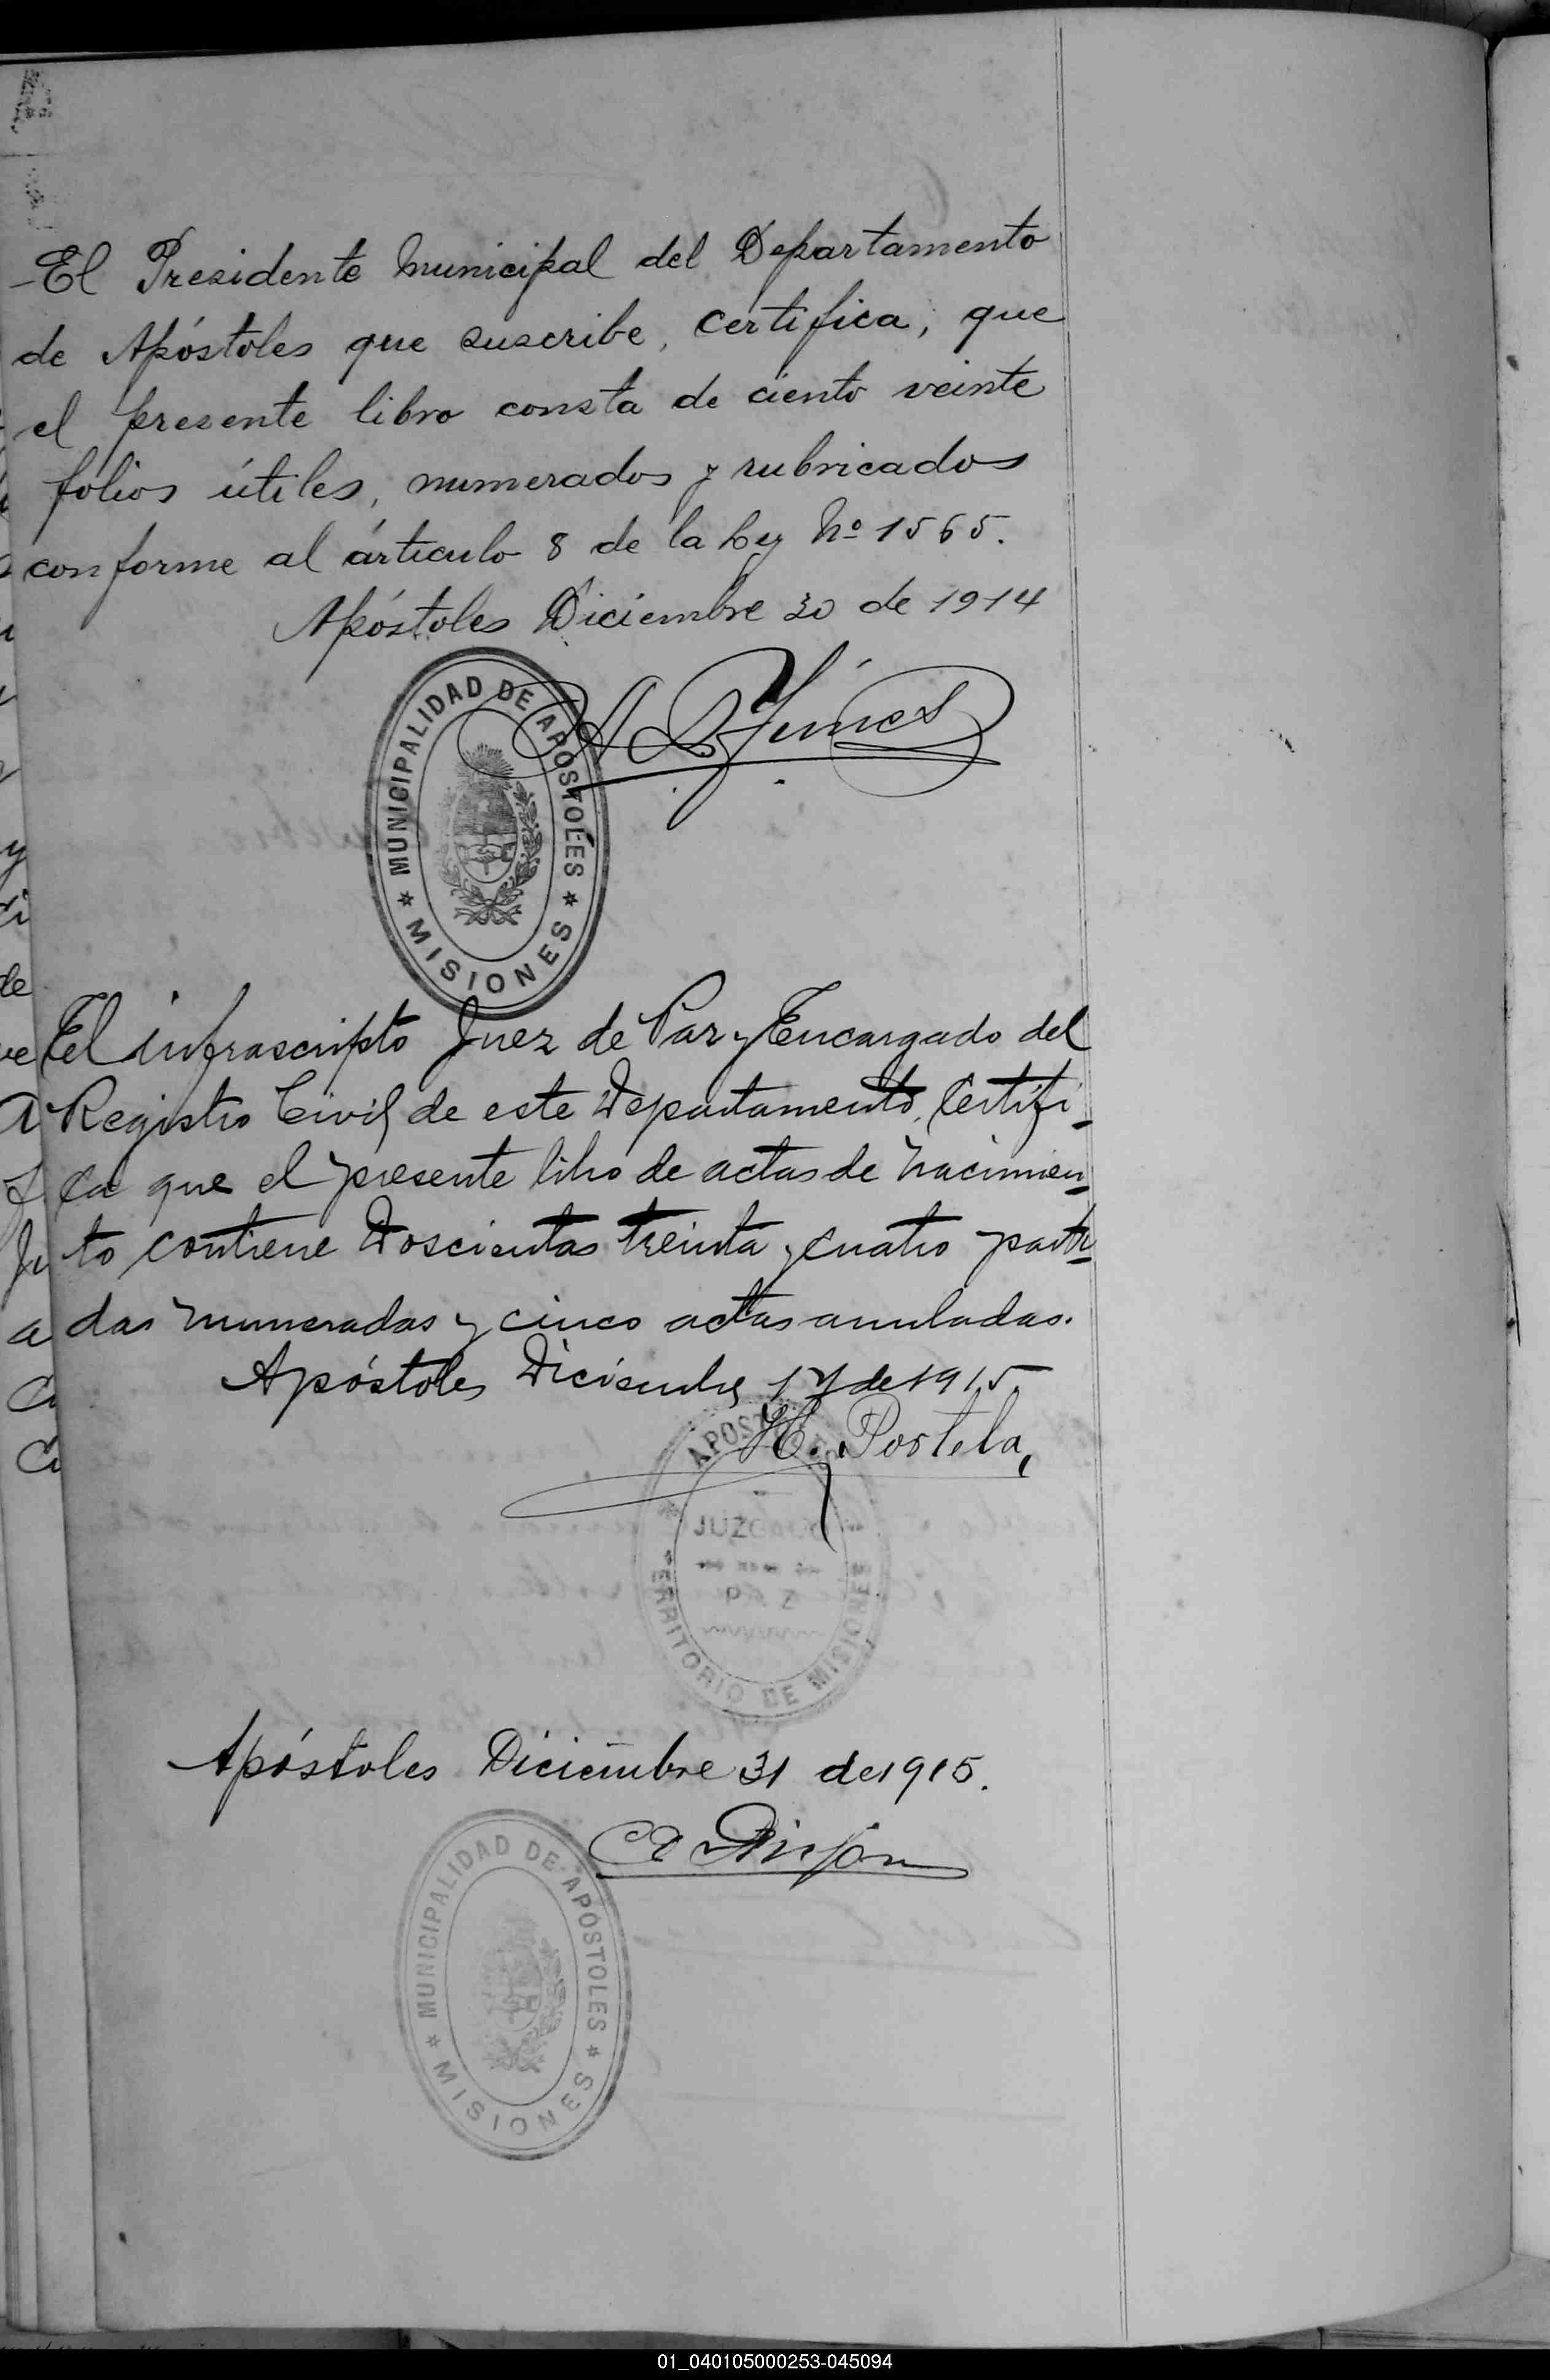 El Presidente Municipal del Departamento
de Apóstoles que suscribe, certifica, que
el presente libro consta de ciento veinte
folios útiles, numerados y rubricados
conforme al árticulo 8 de la Ley Nº 1565.
Apóstoles Diciembre 30 de 1914
MUNICIPALIDAD DE APOSTOLES
* MISIONES *
El infrascripto Juez de Paz y Encargado del
Registro Civil de este Departamento, Certifi-
ca que el presente libro de actas de nacimien-
to contiene Doscientas treinta y cuatro parti-
das numeradas y cinco actas anuladas.
Apóstoles Diciembre 17 de 1915.
H. Portela,
JUZGADO
PAZ
TERRITORIO DE MISIONES
Apóstoles Diciembre 31 de 1915.
MUNICIPALIDAD DE APOSTOLES
* MISIONES *
01_040105000253-045094